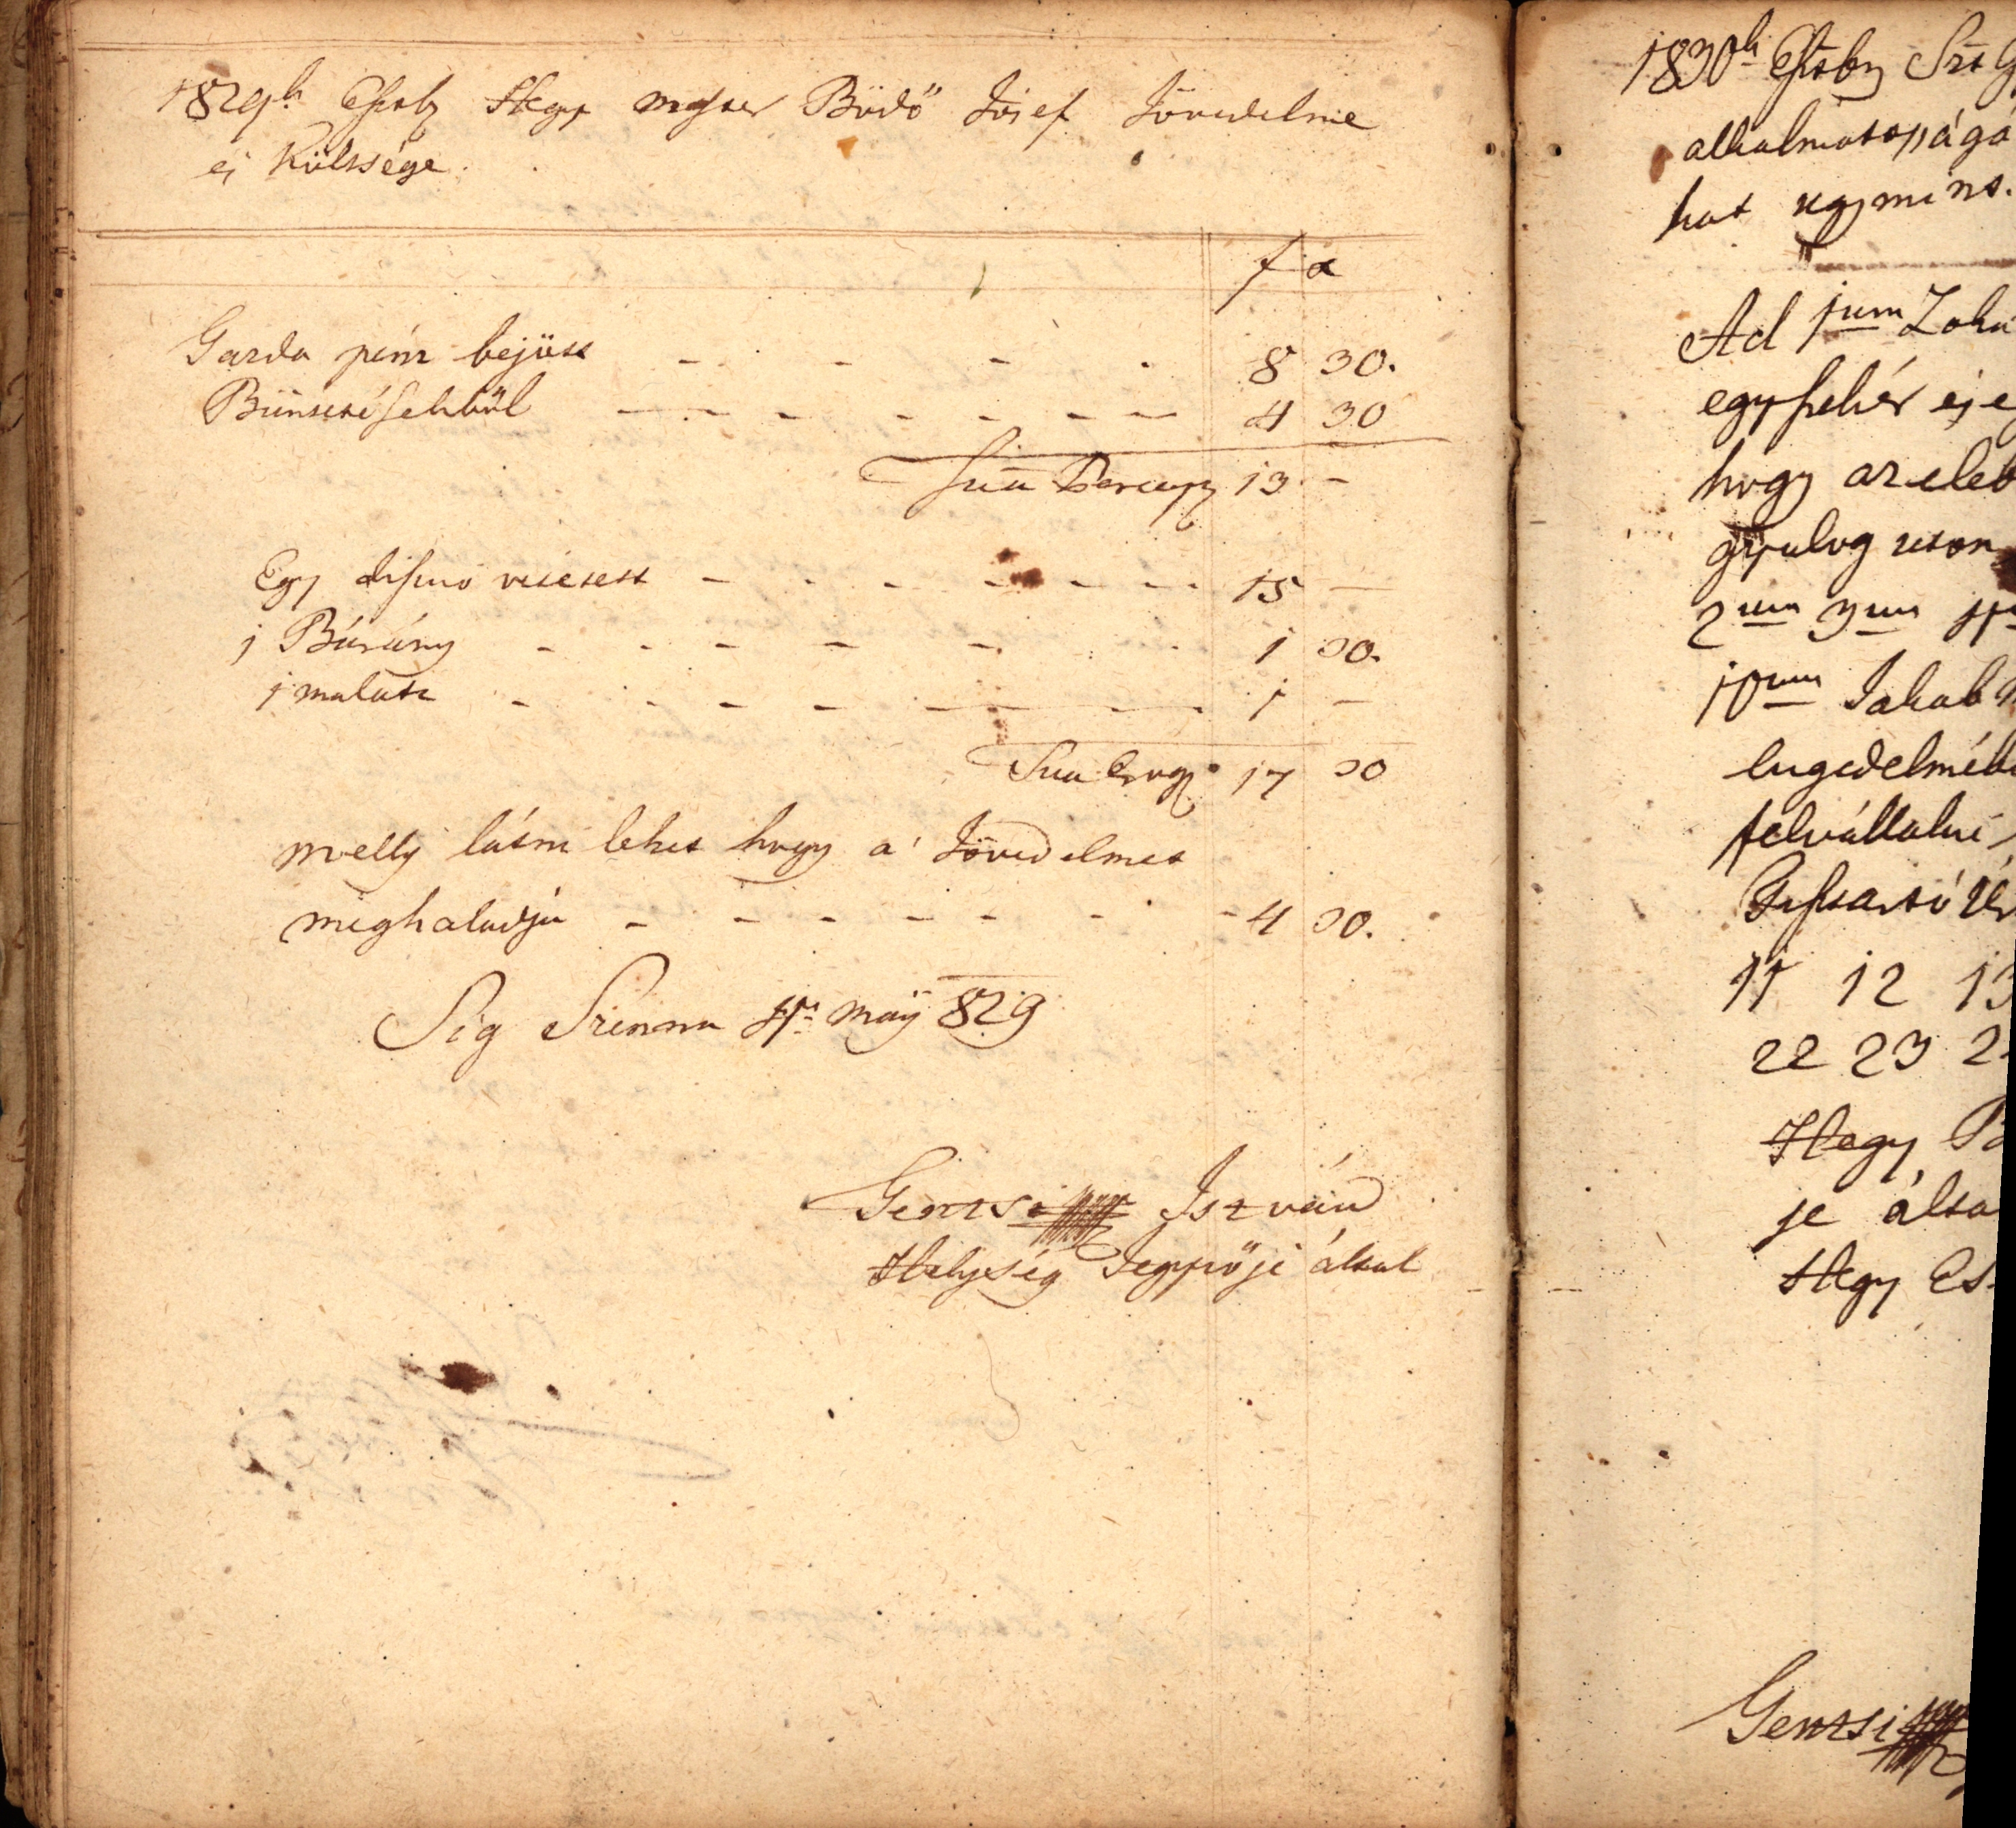 1829k Eszby Hegy mester Büdő Jósef Jövedelme
és Költsége.
f x
Garda pénz bejött - - - - - 8 30.
Büntetésekbül - - - - - - - 4 30
Suma Percep 13 -
Egy disznó vétetett - - - - - - - 15 -
1 Bárány - - - - - - 1 30.
1 malatz - - - - - - 1 -
Suma Erog 17 30
melly látni lehet hogy a' Jövedelmet
meghaladja - - - - - - - 4 30.
Sig Szenna május 829
Gentsi István
Helység Jegyzője által
1830k Eszby
alkalmatosságá
hat ugymint.
Ad 1um
egy fehér és e
hogy az eleb
gyalog uton
2um 3um
10um Jakab
engedelméb
felvállalni
11 12 13
22 23 2
Hegy B
je álta
Hegy Es
Gentsi